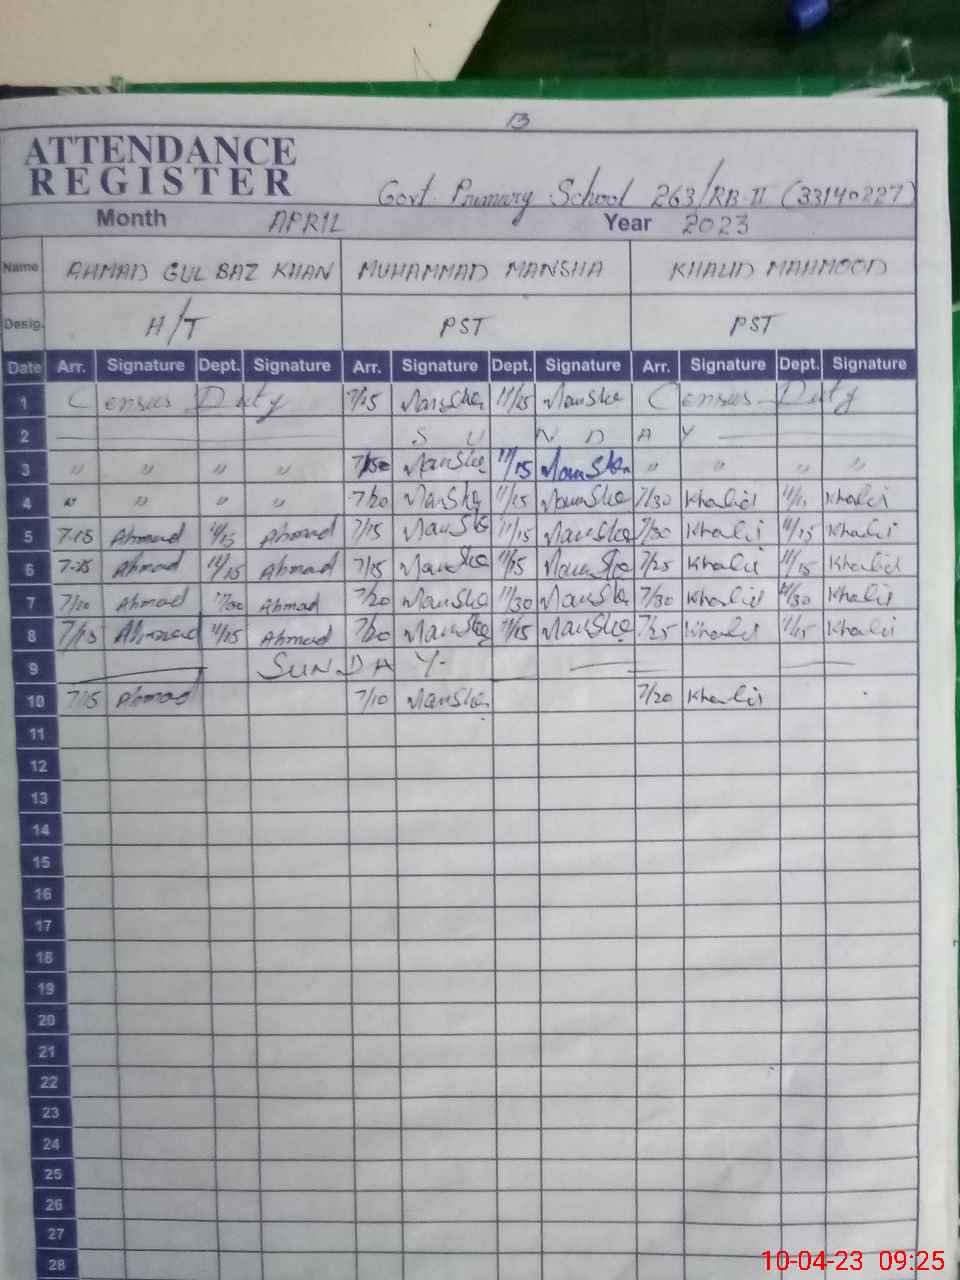 13
ATTENDANCE
REGISTER
Govt. Primary School 263/RB-II (33140227)
Month APRIL Year 2023
Name AHMAD GUL BAZ KHAN MUHAMMAD MANSHA KHALID MAHMOOD
Desig. H/T PST PST
Date Arr. Signature Dept. Signature Arr. Signature Dept. Signature Arr. Signature Dept. Signature
1 Census Duty 7/15 Mansha 11/15 Mansha Census Duty
2 SUNDAY
3 " " " " Mansha 11/15 Mansha " " " "
4 " " " " 7/20 Mansha 11/15 Mansha 7/30 Khalid Khalid
5 7.15 Ahmad 11/15 Ahmad 7/15 Mansha 11/15 Mansha 7/30 Khalid 11/15 Khalid
6 Ahmad 11/15 Ahmad 7/15 Mansha 11/15 Mansha 7/25 Khalid 11/15 Khalid
7 7/10 Ahmad Ahmad 7/20 Mansha 11/30 Mansha 7/30 Khalid 11/30 Khalid
8 7/15 Ahmad 11/15 Ahmad 7/20 Mansha 11/15 Mansha 7/25 Khalid 11/15 Khalid
9 SUNDAY
10 7/15 Ahmad 7/10 Mansha 7/20 Khalid
11
12
13
14
15
16
17
18
19
20
21
22
23
24
25
26
27
28
10-04-23 09:25